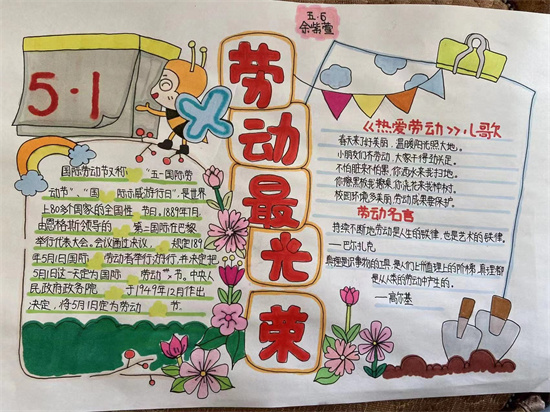 五.6
余紫萱
5·1
劳动最光荣
国际劳动节又称“五一国际劳
动节”、“国际示威游行日”,是世界
上80多个国家的全国性节日.1889年7月
由恩格斯领导的第二国际在巴黎
举行代表大会,会议通过决议,规定189
年5月1日国际劳动者举行游行,并决定把
5月1日这一天定为国际劳动节.中央人
民政府政务院于1949年12月作出
决定,将5月1日定为劳动节.
《热爱劳动》儿歌
春天来了好美丽,温暖阳光照大地。
小朋友们齐劳动,大家干得劲头足。
不怕脏来不怕累,你洒水来我扫地。
你擦黑板我搬桌,你浇花来我种树。
校园环境多美丽,劳动成果要保护。
劳动名言
持续不断地劳动是人生的铁律,也是艺术的铁律。
——巴尔扎克
的工具,是人们上升道理上的阶梯,真理都
是从人类的劳动中产生的。
——高尔基